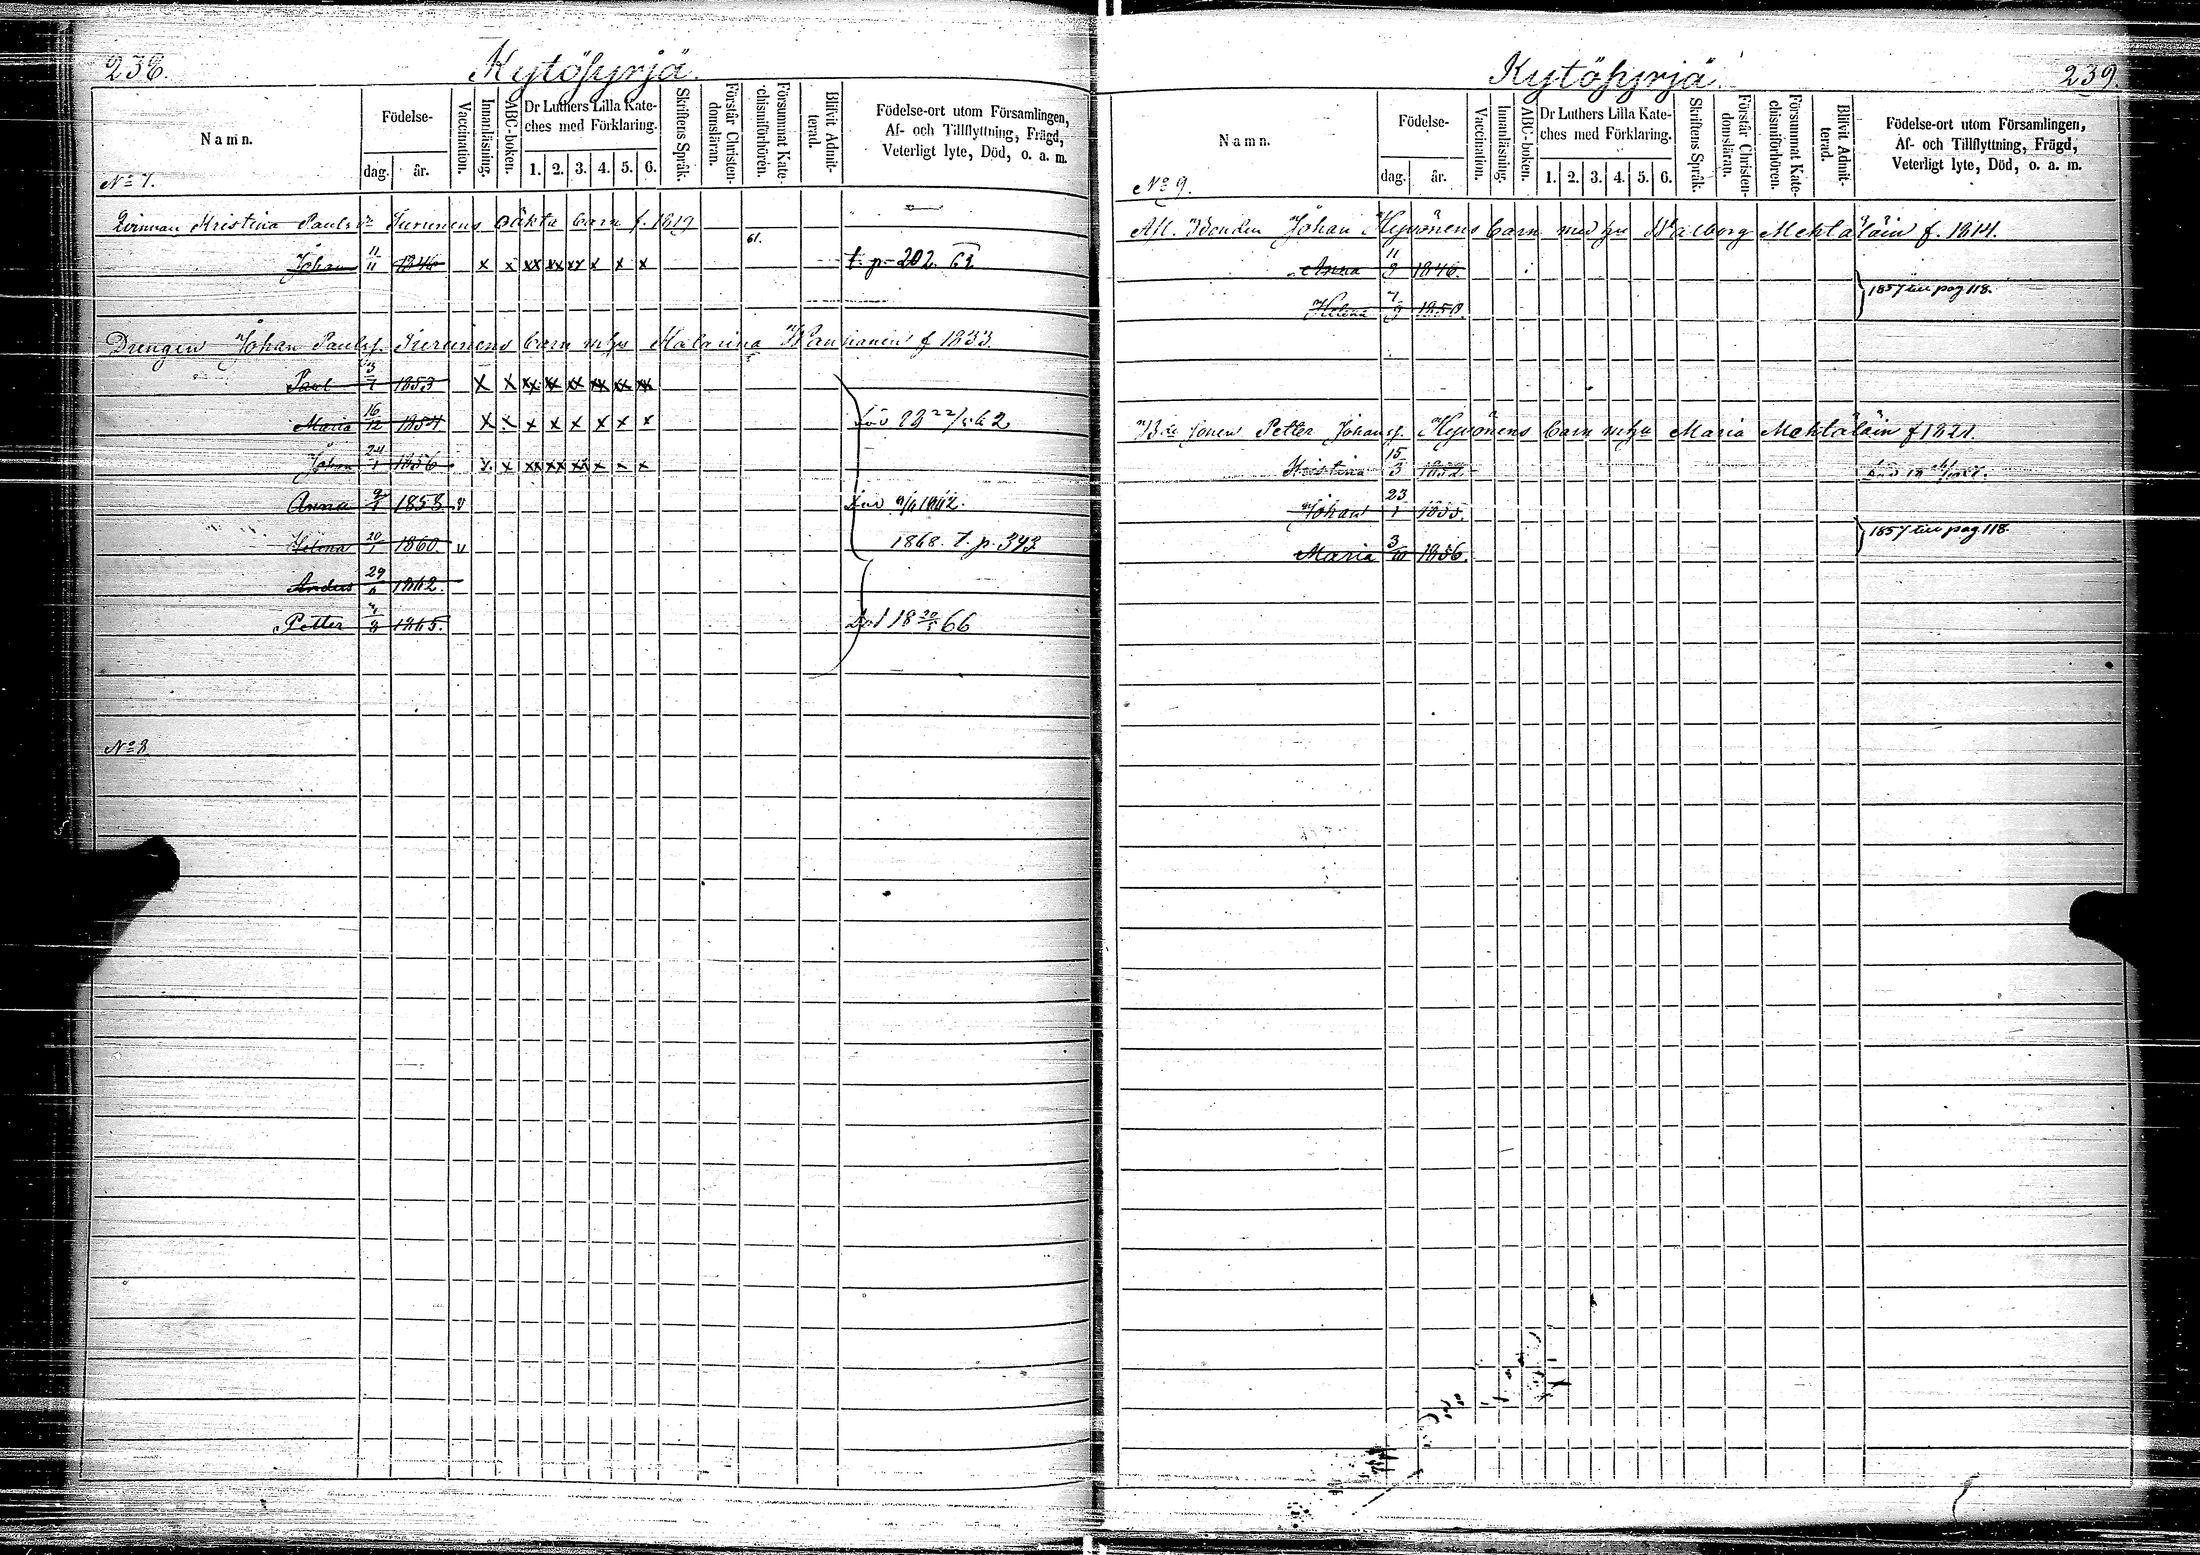 238. Kytöhyrjä.
Namn. Födelse- dag. år. Vaccination. Innanläsning. ABC-boken. Dr Luthers Lilla Kate-ches med Förklaring. 1. 2. 3. 4. 5. 6. Skriftens Språk. Förstår Christen-domsläran. Försummat Kate-chismiförhören. Blifvit Admit-terad. Födelse-ort utom Församlingen, Af- och Tillflyttning, Frägd, Veterligt lyte, Död, o. a. m.
No 7.
Qvinnan Kristina Pauls Turunens oäkta barn f. 1819
61.
Johan 11/11 1846 x x xx xx xx x x x t. p. 202 62
Drengen Johan Paulsf. Turunens barn m hu Katarina f 1833.
Paul 3/1 1853 x x xx xx xx xx xx xx
Maria 16/12 1854 x x x x x x x x
Johan 24/1 1856 x x xx xx xx x x x
Anna 1858 v Död 1862.
Helena 20/1 1860 v 1868. t. p. 343
Anders 29/6 1862.
Petter 1865. Död 18 20/5 66
No 8
Kytöhyrjä. 239.
Namn. Födelse- dag. år. Vaccination. Innanläsning. ABC-boken. Dr Luthers Lilla Kate-ches med Förklaring. 1. 2. 3. 4. 5. 6. Skriftens Språk. Förstår Christen-domsläran. Försummat Kate-chismiförhören. Blifvit Admit-terad. Födelse-ort utom Församlingen, Af- och Tillflyttning, Frägd, Veterligt lyte, Död, o. a. m.
No 9.
Afl. Bonden Johan Hyvönens barn med hu Walborg Mehtäläin f. 1814.
Anna 11/9 1846.
Helena 7/9 1850. 1857 till pag 118.
Sonen Petter Johansf. Hyvönens barn m hu Maria Mehtäläin f 1821.
Kristina 15/3 1852.
Johan 23/1 1855.
Maria 3/10 1856. 1857 till pag 118.